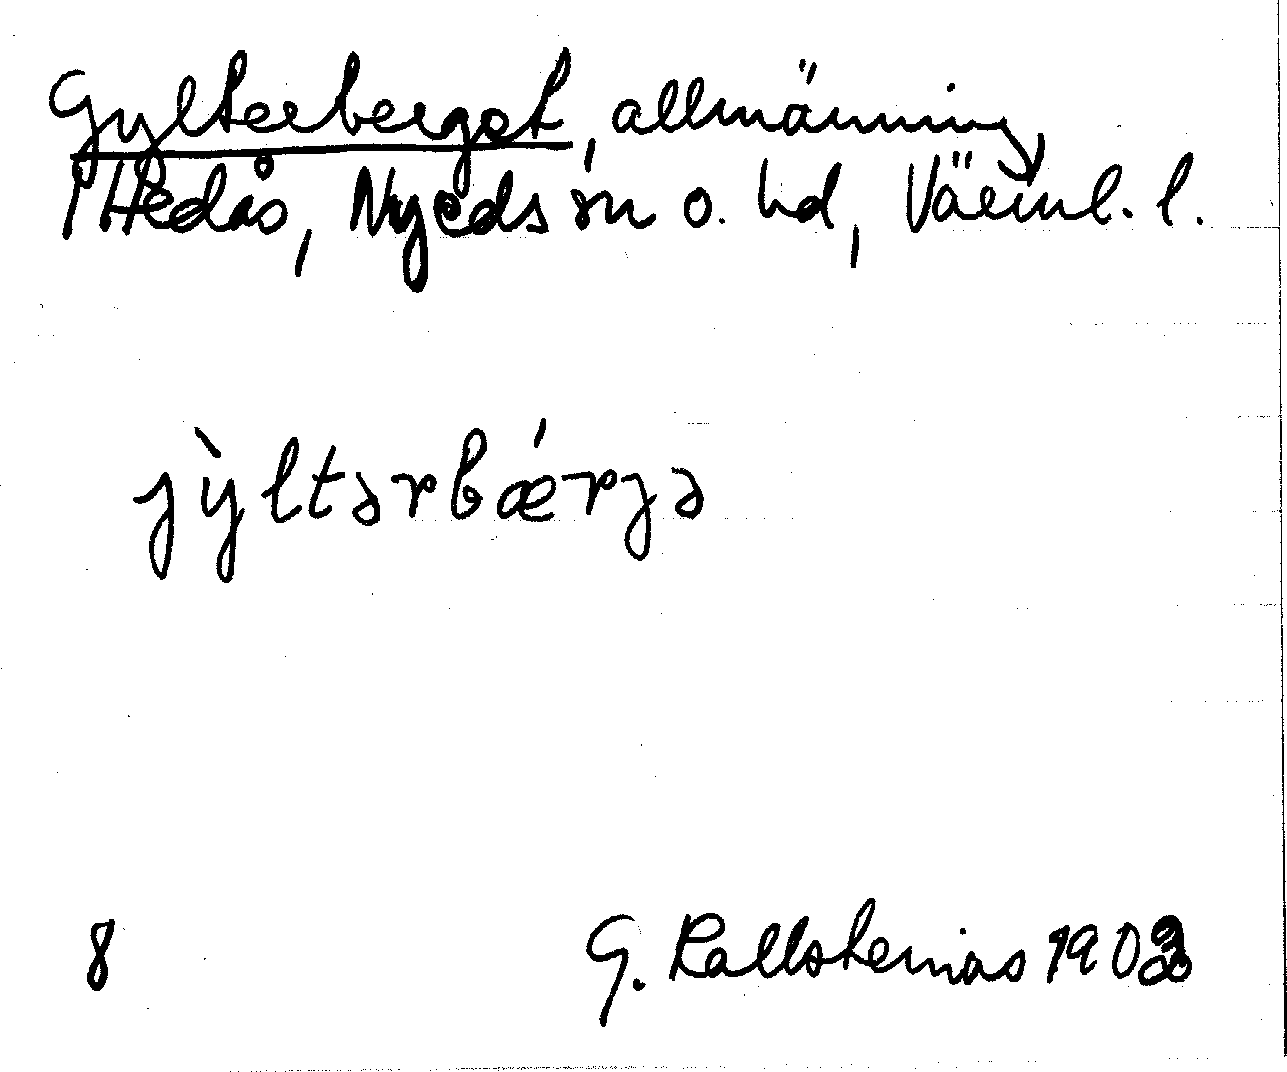 Gylterberget, allmänning,
i Hedås, Nyeds sn o. hd, Värml. l.
jy̾̀ltərbǽrjə
8 G. Kallstenius